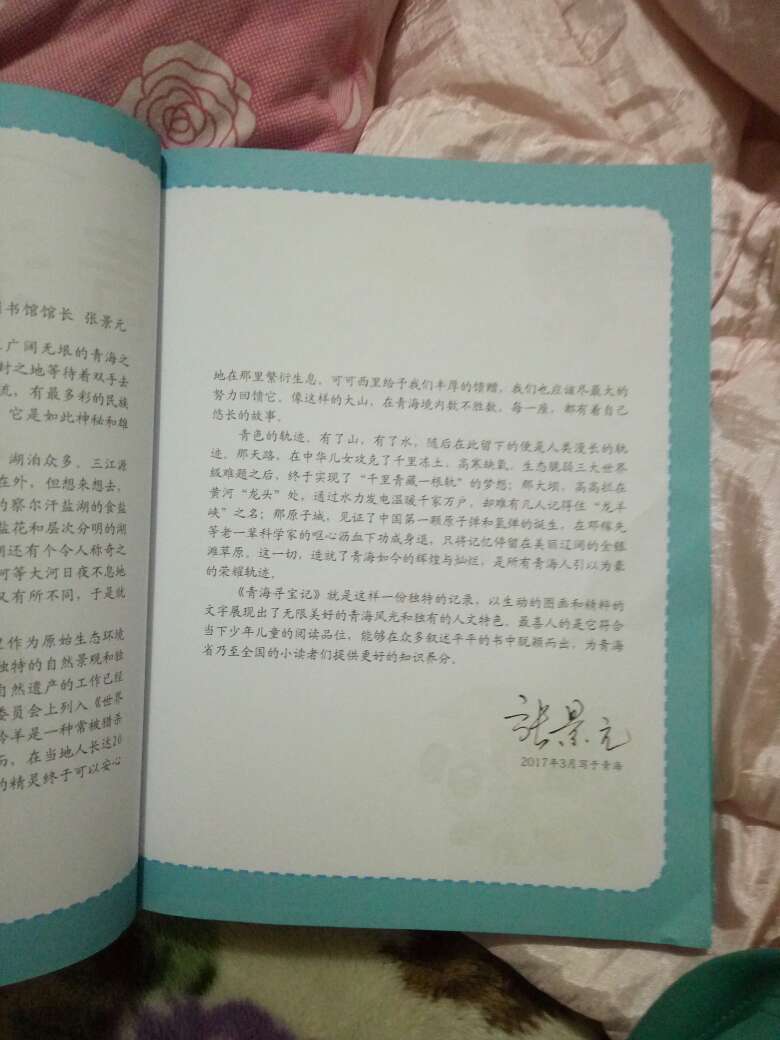 书馆馆长 张景元
广阔无垠的青海之
封之地等待着双手去
流，有最多彩的民族
它是如此神秘和雄
湖泊众多。三江源
在外，但想来想去，
的察尔汗盐湖的食盐
盐花和层次分明的湖
湖还有个令人称奇之
河等大河日夜不息地
又有所不同，于是就
作为原始生态环境
独特的自然景观和独
自然遗产的工作已经
委员会上列入《世界
羚羊是一种常被猎杀
而，在当地人长达20
的精灵终于可以安心
地在那里繁衍生息。可可西里给予我们丰厚的馈赠，我们也应该尽最大的
努力回馈它。像这样的大山，在青海境内数不胜数，每一座，都有着自己
悠长的故事。
青色的轨迹。有了山，有了水，随后在此留下的便是人类漫长的轨
迹。那天路，在中华儿女攻克了千里冻土、高寒缺氧、生态脆弱三大世界
级难题之后，终于实现了“千里青藏一根轨”的梦想；那大坝，高高拦在
黄河“龙头”处，通过水力发电温暖千家万户，却难有几人记得住“龙羊
峡”之名；那原子城，见证了中国第一颗原子弹和氢弹的诞生，在邓稼先
等老一辈科学家的呕心沥血下功成身退，只将记忆停留在美丽辽阔的金银
滩草原。这一切，造就了青海如今的辉煌与灿烂，是所有青海人引以为豪
的荣耀轨迹。
《青海寻宝记》就是这样一份独特的记录，以生动的图画和精粹的
文字展现出了无限美好的青海风光和独有的人文特色。最喜人的是它符合
当下少年儿童的阅读品位，能够在众多叙述平平的书中脱颖而出，为青海
省乃至全国的小读者们提供更好的知识养分。
张景元
2017年3月写于青海